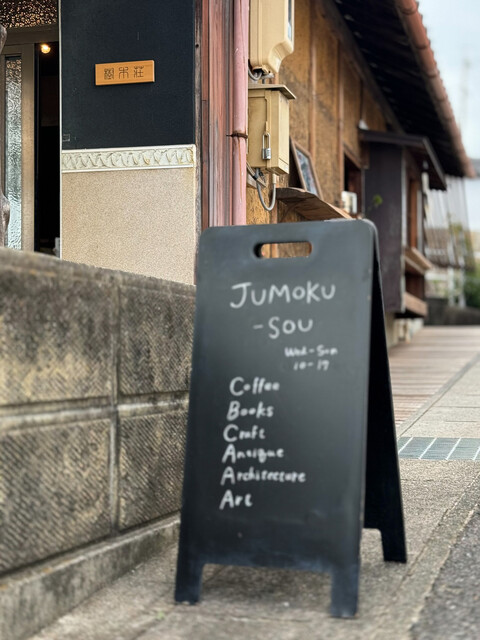 樹木荘
JUMOKU
-SOU
Wed-Sun
10-17
Coffee
Books
Craft
Antique
Architecture
Art